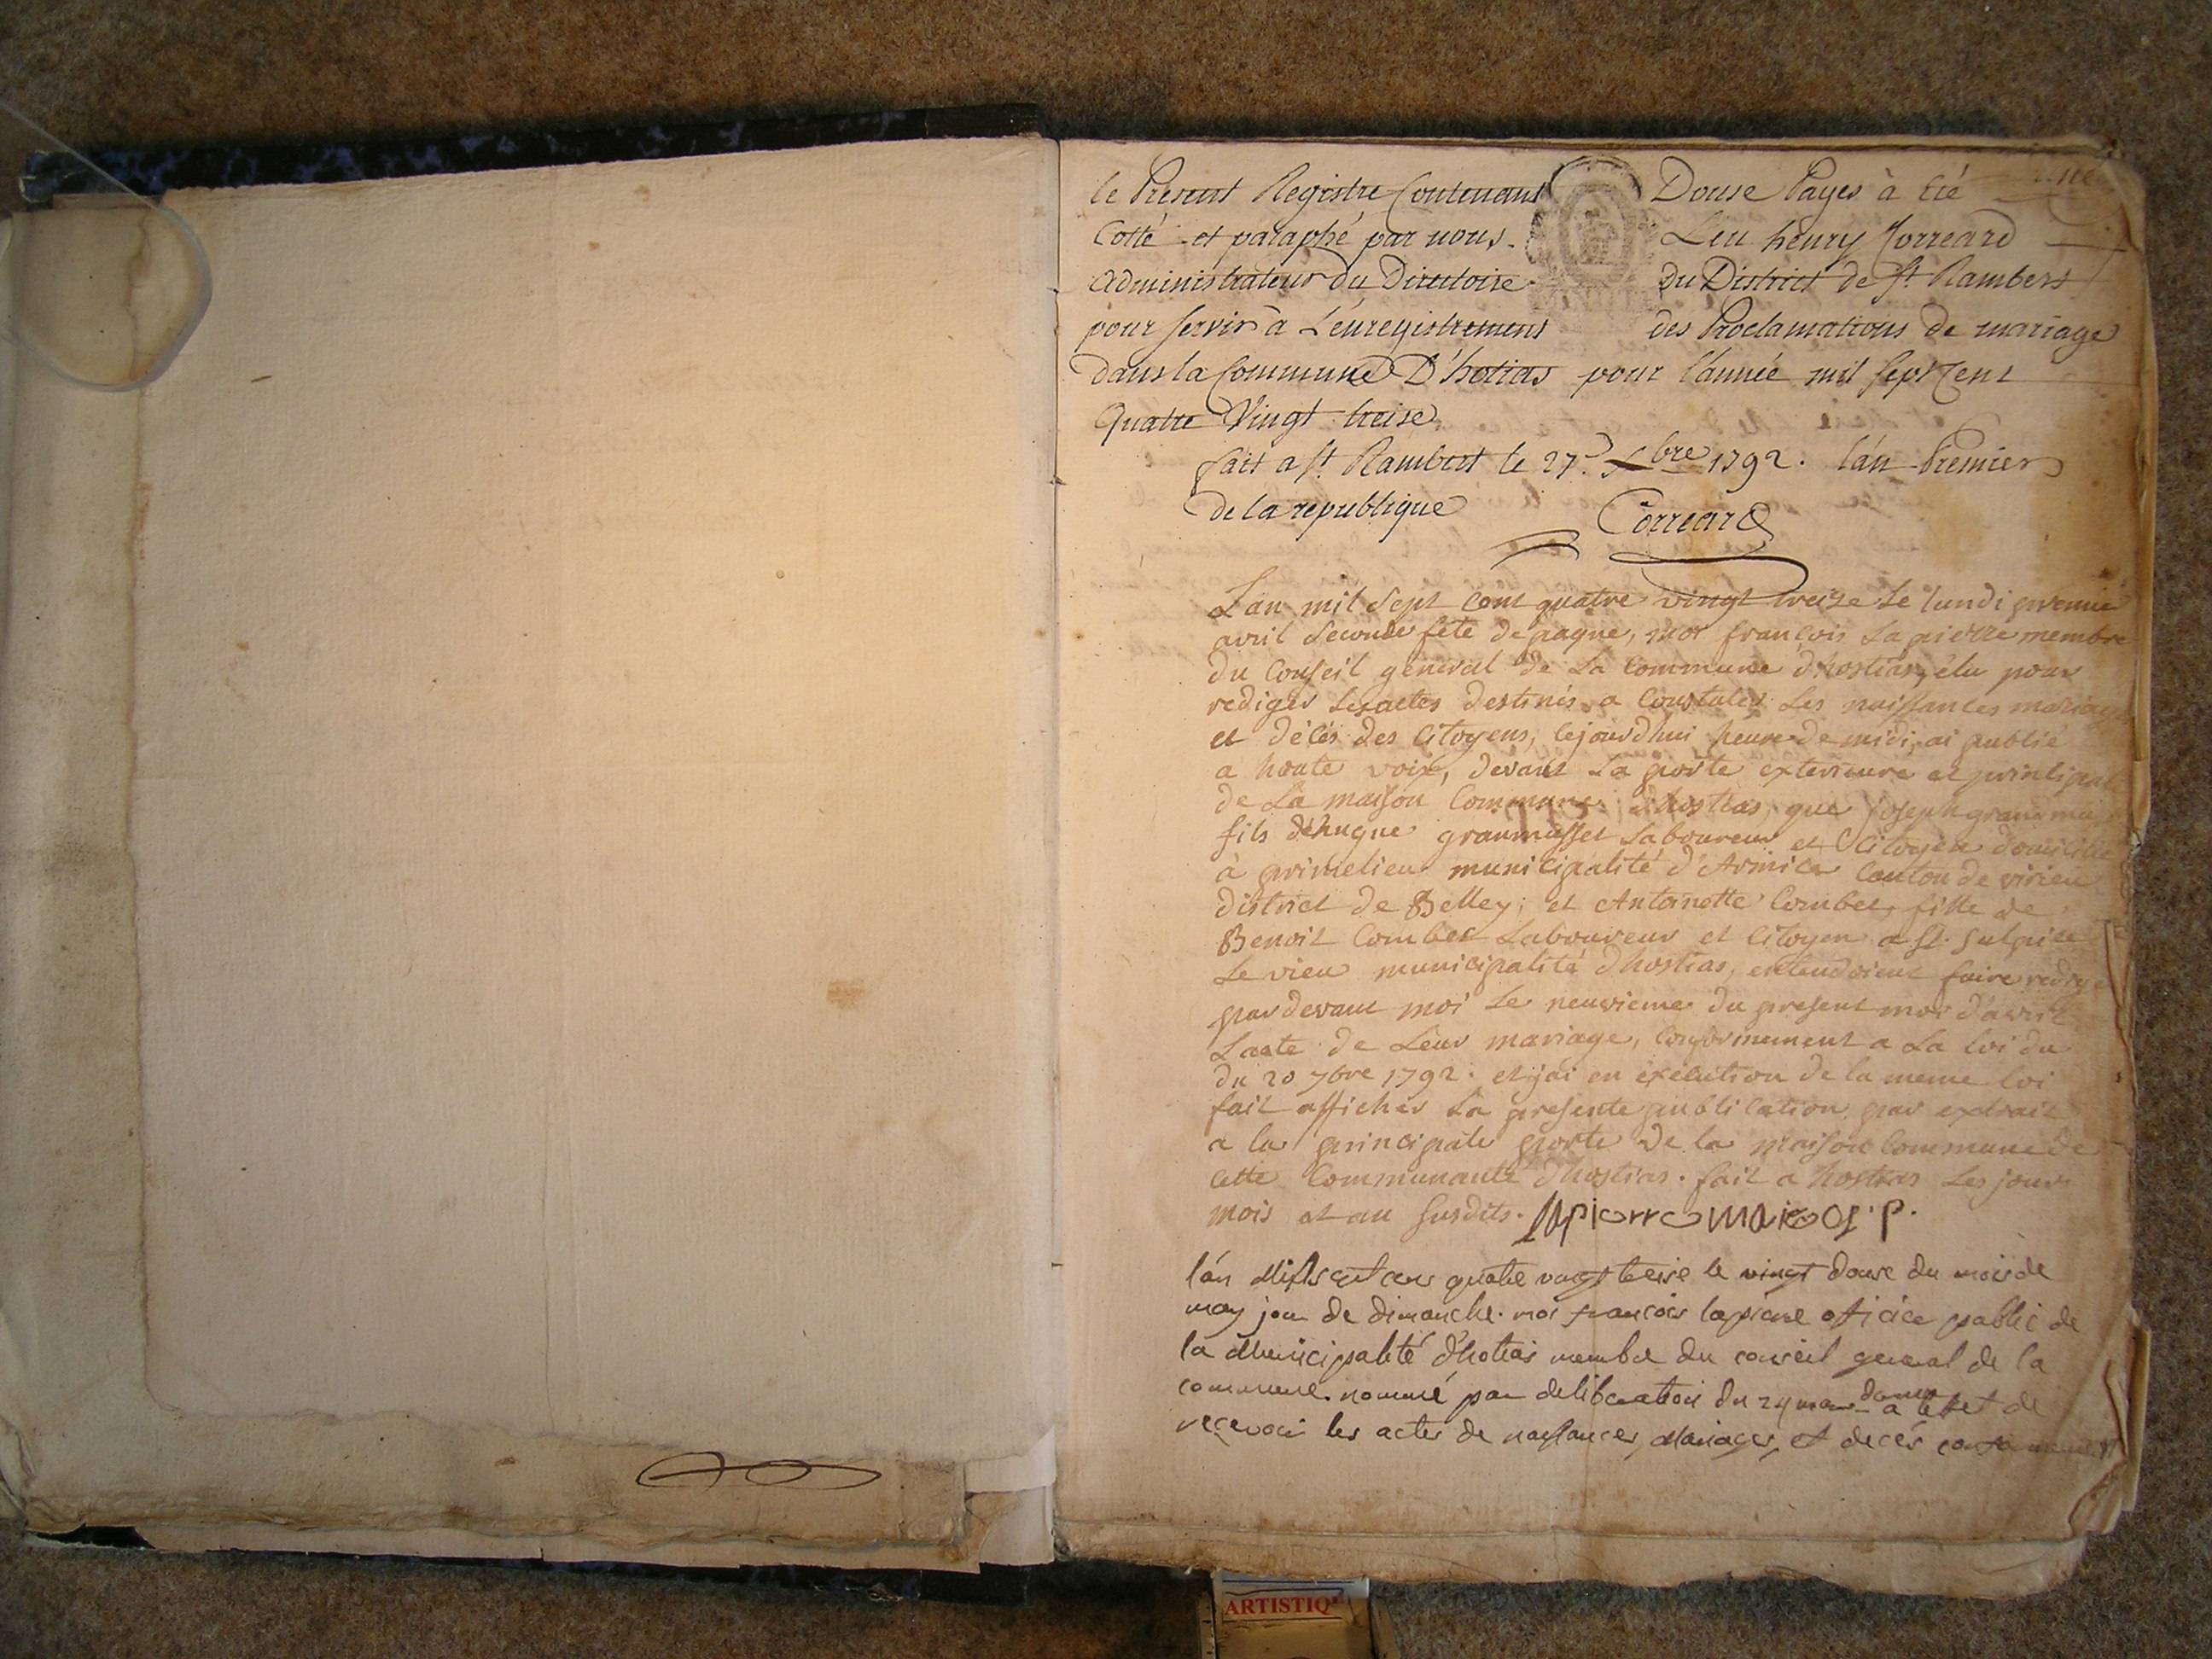 le Présent Registre Contenant Douse Pages à été
Cotté et paraphé par nous Leu henry Correard
administrateur du Directoire du District de St. Rambert
pour servir à L'enregistrement des Proclamations de mariage
dans la Commune D'hotias pour l'année mil sept Cent
Quatre Vingt treise
fait a St. Rambert le 27. Xbre 1792. l'an Premier
de la republique Correard
L'an mil Sept Cent quatre vingt treize Le lundi premie
avril Seconde fete de paque, moi françois Lapierre membre
du Conseil géneral de La Commune d'hostias, élu pour
rediger Les actes destinés a Constater Les naissances mariages
et décés des Citoyens, cejourdhui heure de midi, ai publié
a haute voix, devant La porte exterieure et principale
de La maison Commune d'hostias, que joseph granmu
fils d'hugue granmusset Laboureur et Citoyen domicilié
à primelieu municipalité d'Armica Canton de virieu
district de Belley; et Antoinette Combet fille de
Benoit Combet Laboureur et Citoyen a St. Sulpice
Le vieu municipalité d'hostias, entendoient faire redige
pardevant moi Le neuvieme du present mois d'avril
Lacte de Leur mariage, Conformement a La Loi du
du 20 7bre 1792. et jai en éxécution de la meme Loi
fait afficher La presente publication par extrait
a la principale porte de la maison Commune de
Cette Communauté d'hostias. fait a hostias Les jour
mois et an Susdits. lapierre maire of. p.
l'an Mil sept cens quatre vingt treise le vingt douse du mois de
may jour de dimanche. moi françois lapierre oficice public de
la Municipalité d'hotias membre du conseil general de la
commune. nommé par deliberation du 24 mars dernier a leffet de
recevoir les actes de naissances, Mariages, et decés conformement
ARTISTIQ